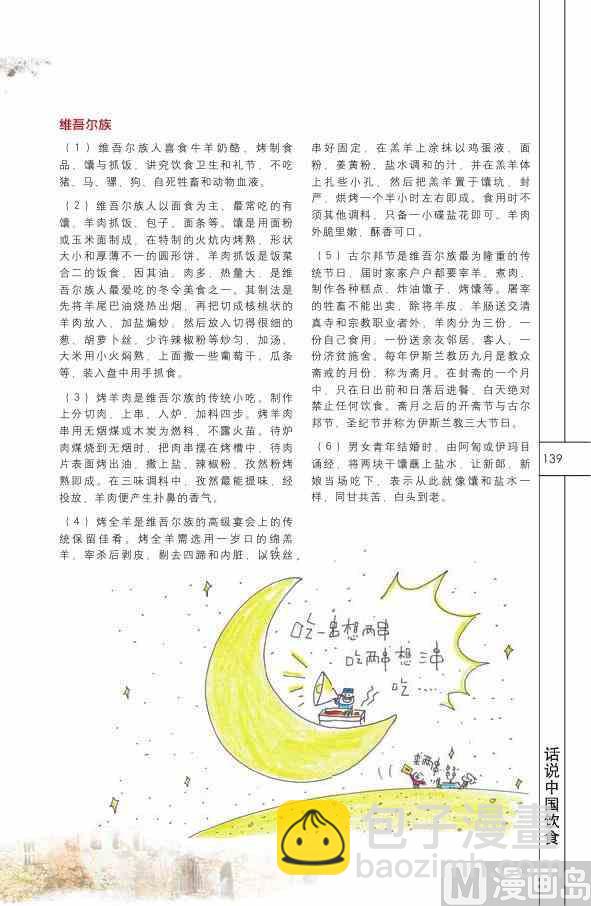 维吾尔族
（1）维吾尔族人喜食牛羊奶酪、烤制食
品、馕与抓饭、讲究饮食卫生和礼节、不吃
猪、马、骡、狗、自死牲畜和动物血液。
（2）维吾尔族人以面食为主、最常吃的有
馕、羊肉抓饭、包子、面条等。馕是用面粉
或玉米面制成、在特制的火炕内烤熟、形状
大小和厚薄不一的圆形饼。羊肉抓饭是饭菜
合二的饭食、因其油、肉多、热量大、是维
吾尔族人最爱吃的冬令美食之一。其制法是
先将羊尾巴油烧热出烟、再把切成核桃状的
羊肉放入、加盐煸炒、然后放入切得很细的
葱、胡萝卜丝、少许辣椒粉等炒匀、加汤、
大米用小火焖熟、上面撒一些葡萄干、瓜条
等、装入盘中用手抓食。
（3）烤羊肉是维吾尔族的传统小吃。制作
上分切肉、上串、入炉、加料四步。烤羊肉
串用无烟煤或木炭为燃料、不露火苗。待炉
肉煤烧到无烟时、把肉串摆在烤槽中、待肉
片表面烤出油、撒上盐、辣椒粉、孜然粉烤
熟即成。在三味调料中、孜然最能提味、经
投放、羊肉便产生扑鼻的香气。
（4）烤全羊是维吾尔族的高级宴会上的传
统保留佳肴。烤全羊需选用一岁口的绵羔
羊、宰杀后剥皮、剔去四蹄和内脏、以铁丝
串好固定、在羔羊上涂抹以鸡蛋液、面
粉、姜黄粉、盐水调和的汁、并在羔羊体
上扎些小孔、然后把羔羊置于馕坑、封
严、烘烤一个半小时左右即成。食用时不
须其他调料、只备一小碟盐花即可。羊肉
外脆里嫩、酥香可口。
（5）古尔邦节是维吾尔族最为隆重的传
统节日、届时家家户户都要宰羊、煮肉、
制作各种糕点、炸油馓子、烤馕等。屠宰
的牲畜不能出卖、除将羊皮、羊肠送交清
真寺和宗教职业者外、羊肉分为三份、一
份自己食用、一份送亲友邻居、客人、一
份济贫施舍。每年伊斯兰教历九月是教众
斋戒的月份、称为斋月。在封斋的一个月
中、只在日出前和日落后进餐、白天绝对
禁止任何饮食。斋月之后的开斋节与古尔
邦节、圣纪节并称为伊斯兰教三大节日。
（6）男女青年结婚时、由阿訇或伊玛目
诵经、将两块干馕蘸上盐水、让新郎、新
娘当场吃下、表示从此就像馕和盐水一
样、同甘共苦、白头到老。
139
吃一串想两串
吃两串想三串
吃……
来两串
话说中国饮食
包子漫畫
baozimh.com
M 漫画岛